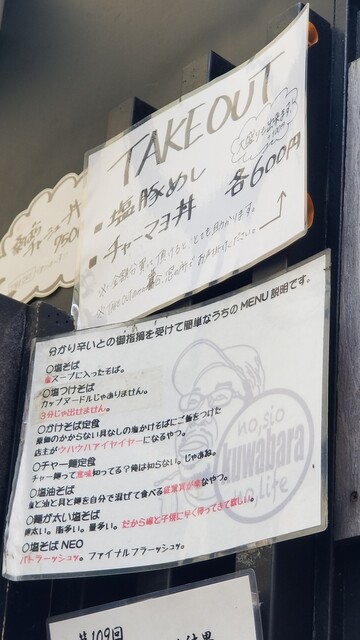 TAKEOUT
大盛りも出来ます!
■ 塩豚めし
■ チャーマヨ丼
各600円
950
分かり辛いとの御指摘を受けて簡単なうちのMENU説明です。
○塩そば
塩スープに入ったそば。
○塩つけそば
カップヌードルじゃありません。
3分じゃ出せません。
○かけそば定食
原価のかからない具なしの塩かけそばにご飯をつけた
店主がウハウハアイヤイヤーになるやつ。
○チャー麺定食
チャー麺って常識知ってる?俺は知らない。じゃあね。
○塩油そば
塩と油と具と麺を自分で混ぜて食べる従業員が楽なやつ。
○麺が太い塩そば
麺太い。脂多い。量多い。だから嫁と子供に早く帰ってきて欲しい。
○塩そば NEO
パトラーッシュッ。ファイナルフラーッシュッ。
no,sio
Kuwabara
no life
第109回